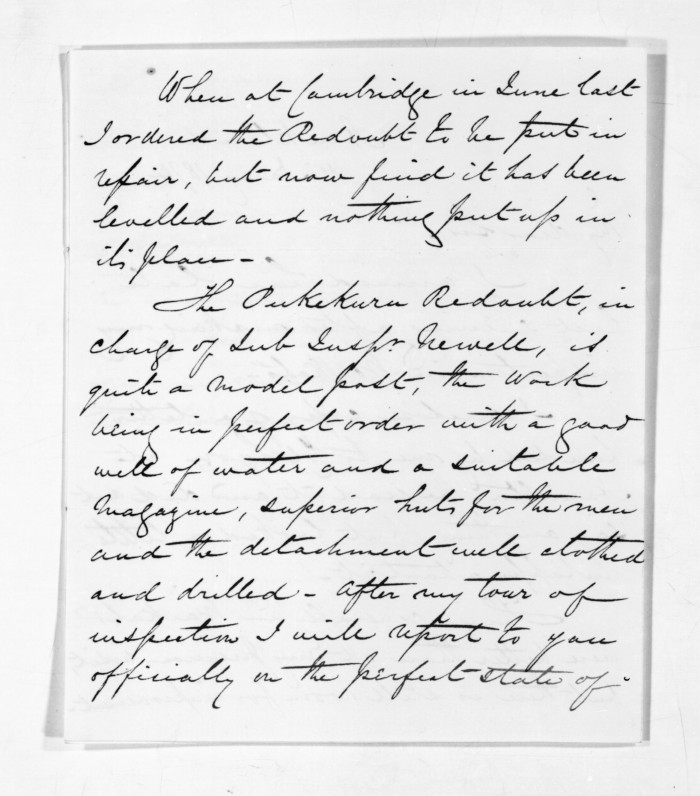 When at Cambridge in June last
I ordered the Redoubt to be put in
repair, but now find it has been
levelled and nothing put up in
its place -
The Pukekura Redoubt, in
charge of Sub Inspr Newell, is
quite a model post, the work
being in perfect order with a good
well of water and a suitable
magazine, superior huts for the men
and the detachment well clothed
and drilled - After my tour of
inspection I will report to you
officially on the perfect state of